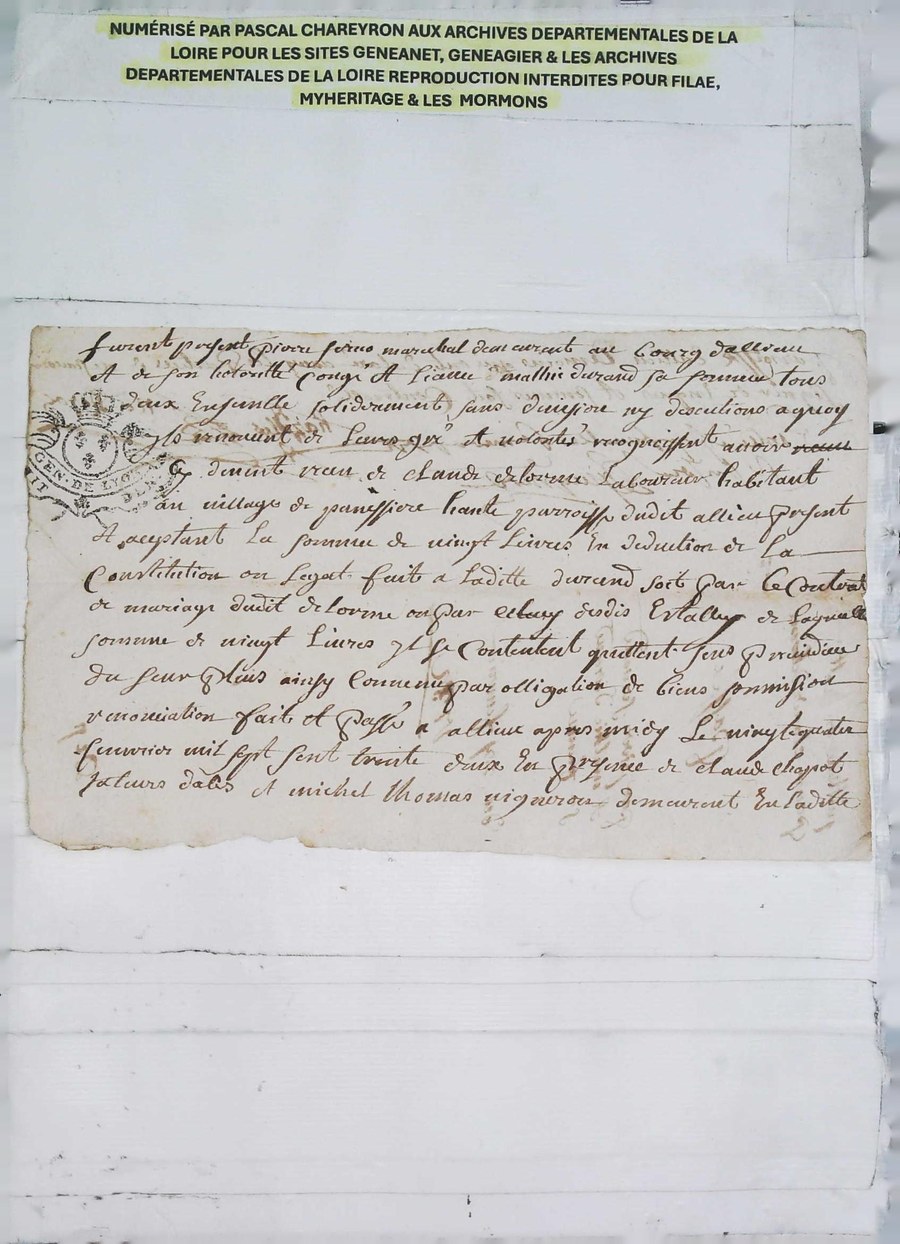 NUMÉRISÉ PAR PASCAL CHAREYRON AUX ARCHIVES DEPARTEMENTALES DE LA
LOIRE POUR LES SITES GENEANET, GENEAGIER & LES ARCHIVES
DEPARTEMENTALES DE LA LOIRE REPRODUCTION INTERDITES POUR FILAE,
MYHERITAGE & LES MORMONS
furent present pierre marechal demeurant au bourg dallieu
Et de son hotorité Congé Et mathie durand sa femme tous
deux Ensemble soliderement sans division ny discutions a quoy
Ils renoncent de Leurs gré Et volonté recognoissent avoir
GEN. DE LYON
de claude delorme Laboureur habitant
au village de panessiere haute parroisse dudit allieu present
Et aceptant La somme de vingt Livres En deduction de La
Constitution ou Legat fait a Laditte durand soit par Le Contrat
de mariage dudit delorme ou par de Laquelle
somme de vingt Livres Il se Contentent quittent sens prejudice
du seur plus ainsy Convenu par obligation de biens sommision
renonciation fait Et passé a allieu apres midy Le vingtquatre
feuvrier mil sept sent trente deux En presence de claude chapot
Et michel thomas vigneron demeurent En Laditte